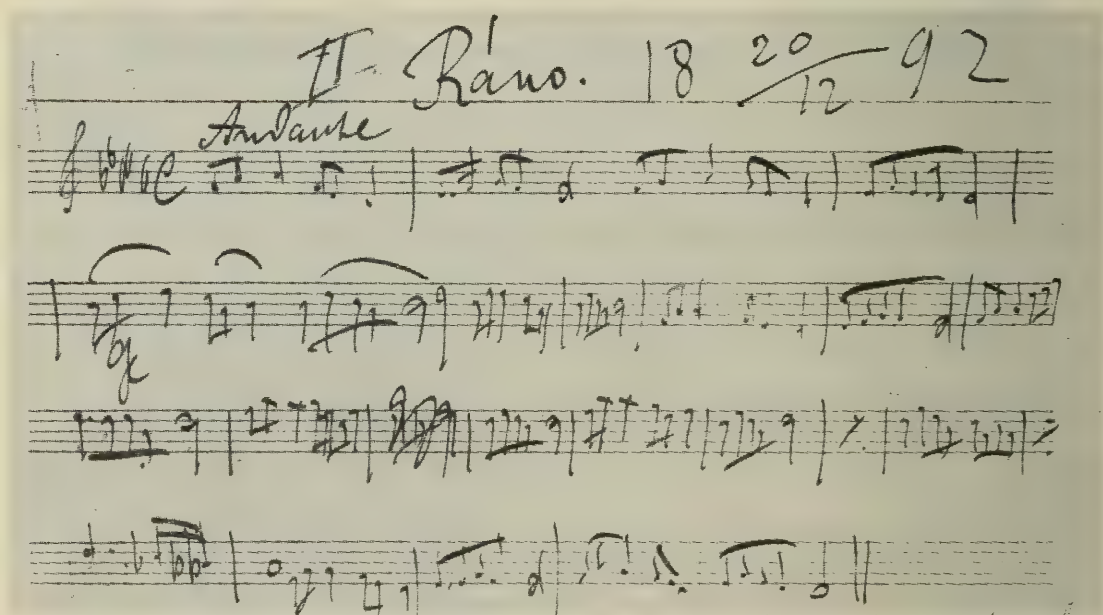 II. Ráno. 18 20/12 92
Andante